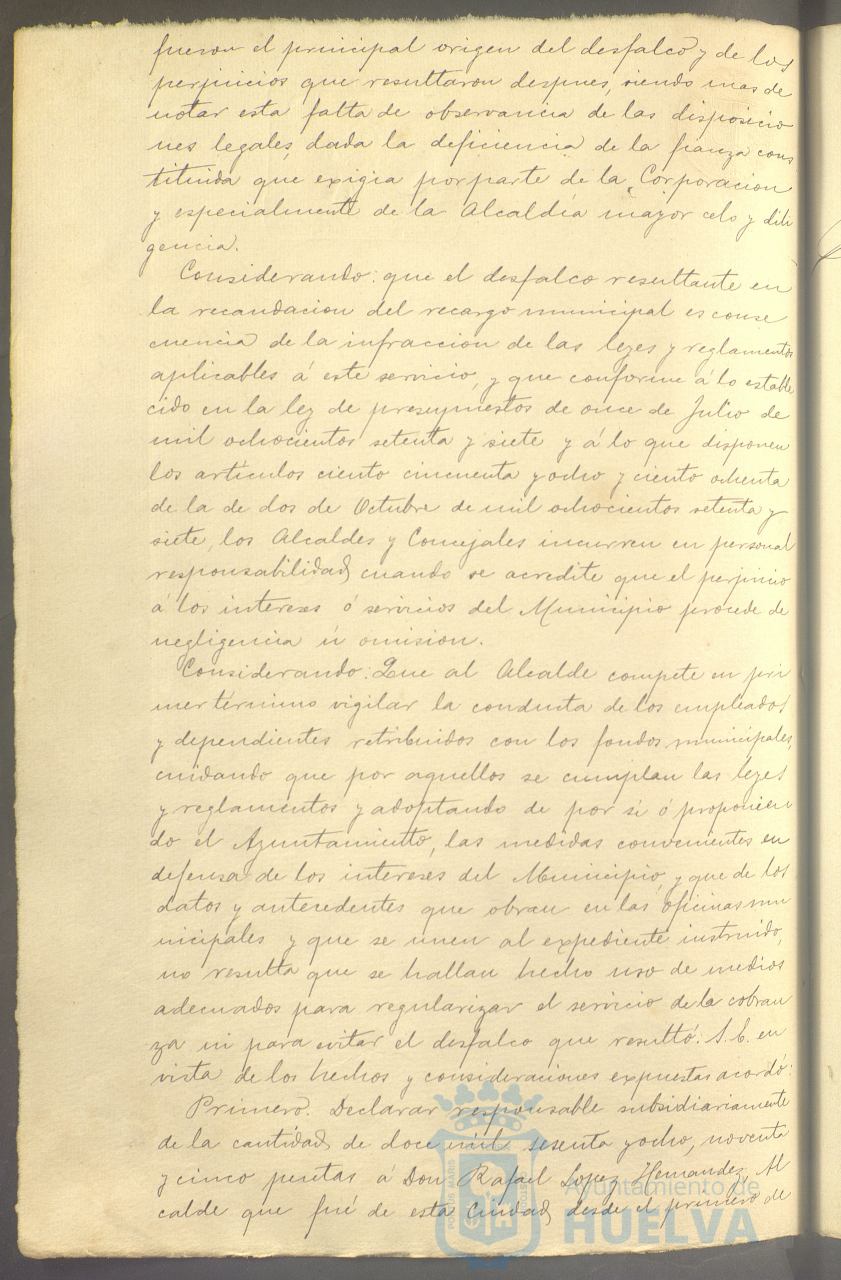 fueron el principal origen del desfalco y de los
perjuicios que resultaron despues, siendo mas de
notar esta falta de observancia de las disposicio
nes legales, dada la deficiencia de la fianza cons
tituida que exigia por parte de la Corporacion
y especialmente de la Alcaldía mayor celo y dili
gencia.
Considerando: que el desfalco resultante en
la recaudacion del recargo municipal es conse
cuencia de la infraccion de las leyes y reglamentos
aplicables á este servicio, y que conforme á lo estable
cido en la ley de presupuestos de once de Julio de
mil ochocientos setenta y siete y á lo que disponen
los artículos ciento cincuenta y ocho y ciento ochenta
de la de dos de Octubre de mil ochocientos setenta y
siete, los Alcaldes y Concejales incurren en personal
responsabilidad cuando se acredite que el perjuicio
á los intereses ó servicios del Municipio procede de
negligencia ú omision.
Considerando: Que al Alcalde compete en pri
mer término vigilar la conducta de los empleados
y dependientes retribuidos con los fondos municipales,
cuidando que por aquellos se cumplan las leyes
y reglamentos y adoptando de por sí ó proponien
do el Ayuntamiento, las medidas convenientes en
defensa de los intereses del Municipio, y que de los
datos y antecedentes que obran en las oficinas mu
nicipales y que se unen al expediente instruido,
no resulta que se hallan hecho uso de medios
adecuados para regularizar el servicio de la cobran
za ni para evitar el desfalco que resultó. S. E. en
vista de los hechos y consideraciones expuestas acordó:
Primero. Declarar responsable subsidiariamente
de la cantidad de doce mil sesenta y ocho, noventa
y cinco pesetas á Don Rafael Lopez Hernandez, Al
calde que fué de esta Ciudad desde el primero de
Ayuntamiento de
HUELVA